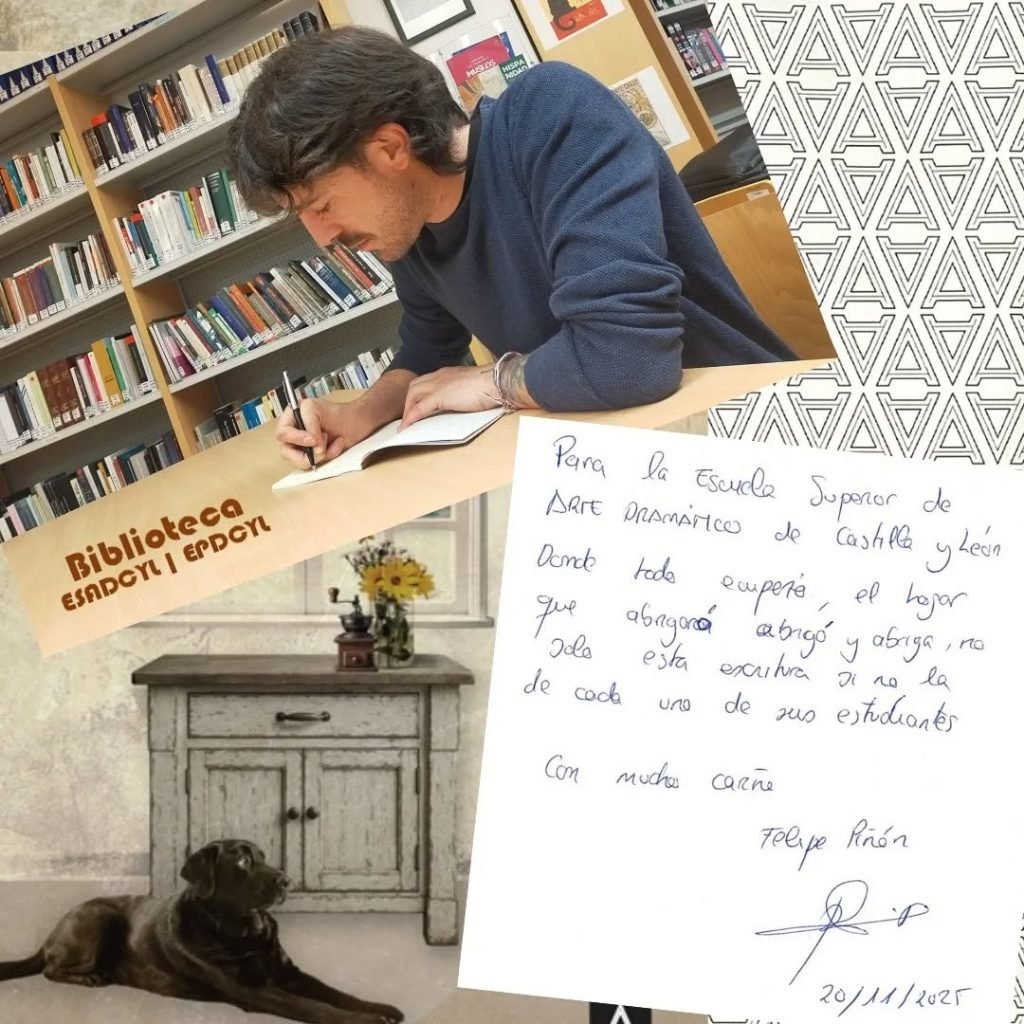 MUSLOS
HISPA
NIDAD
Biblioteca
ESADCYL | EPDCYL
Para la Escuela Superior de
ARTE DRAMÁTICO de Castilla y León
Donde todo empezó, el hogar
que abrigará abrigó y abriga, no
solo esta escritura si no la
de cada uno de sus estudiantes
Con mucho cariño
Felipe Piñón
20/11/2025